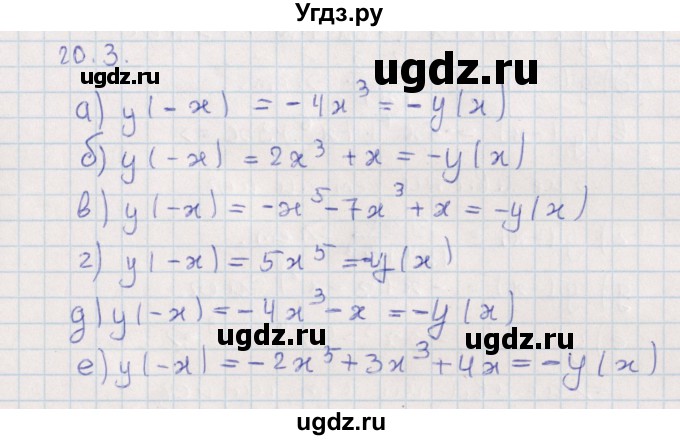 Угдз.ру
20.3.
ugdz.ru
а) y(-x) = -4x³ = -y(x)
б) y(-x) = 2x³ + x = -y(x)
в) y(-x) = -x⁵ - 7x³ + x = -y(x)
г) y(-x) = 5x⁵ = -y(x)
д) y(-x) = -4x³ - x = -y(x)
ugdz.ru
ugdz.ru
е) y(-x) = -2x⁵ + 3x³ + 4x = -y(x)
ugdz.ru